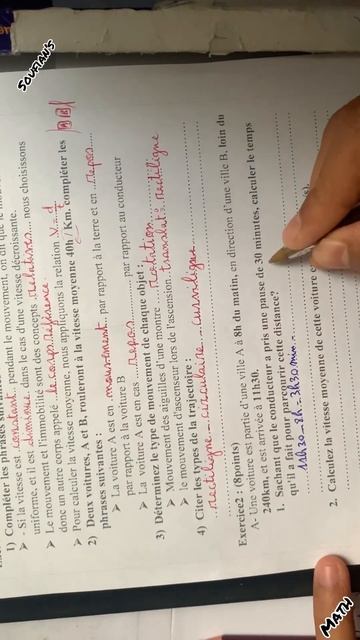 SOUFIAN'S
1) Compléter les phrases
- Si la vitesse est constante pendant le mouvement, on dit que le
uniforme, et il est diminue dans le cas d'une vitesse décroissante.
➤ Le mouvement et l'immobilité sont des concepts relatives nous choisissons
donc un autre corps appelé le corps référence
➤ Pour calculer la vitesse moyenne, nous appliquons la relation V = d
2) Deux voitures, A et B, rouleront à la vitesse moyenne 40h / Km, compléter les
phrases suivantes :
➤ La voiture A est en mouvement par rapport à la terre et en repos
par rapport à la voiture B
➤ La voiture A est en cas repos par rapport au conducteur
3) Déterminez le type de mouvement de chaque objet :
➤ Mouvement des aiguilles d'une montre rotation
➤ le mouvement d'ascenseur lors de l'ascension translat° rectiligne
4) Citer les types de la trajectoire :
rectiligne - circulaire - curviligne
Exercice2 : (8points)
A- Une voiture est partie d'une ville A à 8h du matin, en direction d'une ville B, loin du
240km, et est arrivée à 11h30.
1. Sachant que le conducteur a pris une pause de 30 minutes, calculer le temps
qu'il a fait pour parcourir cette distance?
11h30 - 8h = 3h30min -
2. Calculez la vitesse moyenne de cette voiture
MATH